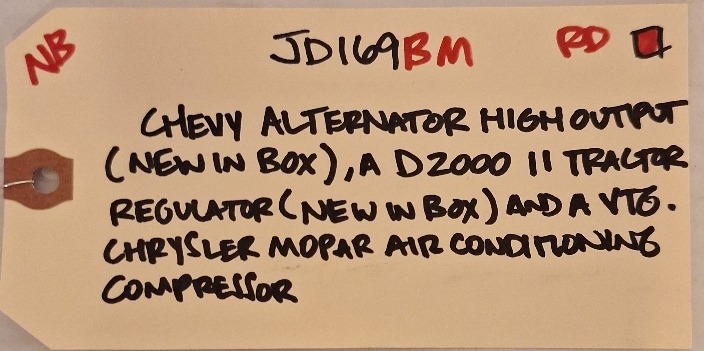 NB JD169BM RD
CHEVY ALTERNATOR HIGH OUTPUT
(NEW IN BOX), A D2000 11 TRACTOR
REGULATOR (NEW IN BOX) AND A VTG.
CHRYSLER MOPAR AIR CONDITIONING
COMPRESSOR